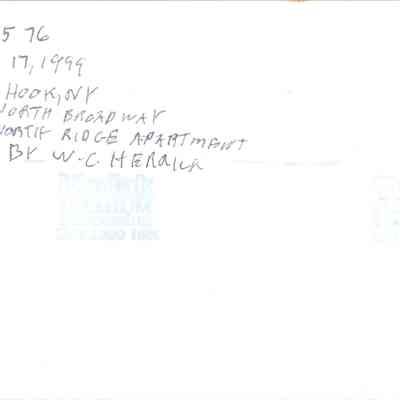 5 76
17, 1999
HOOK, NY
NORTH BROADWAY
NORTH RIDGE APARTMENT
BY W.C. HERRICK